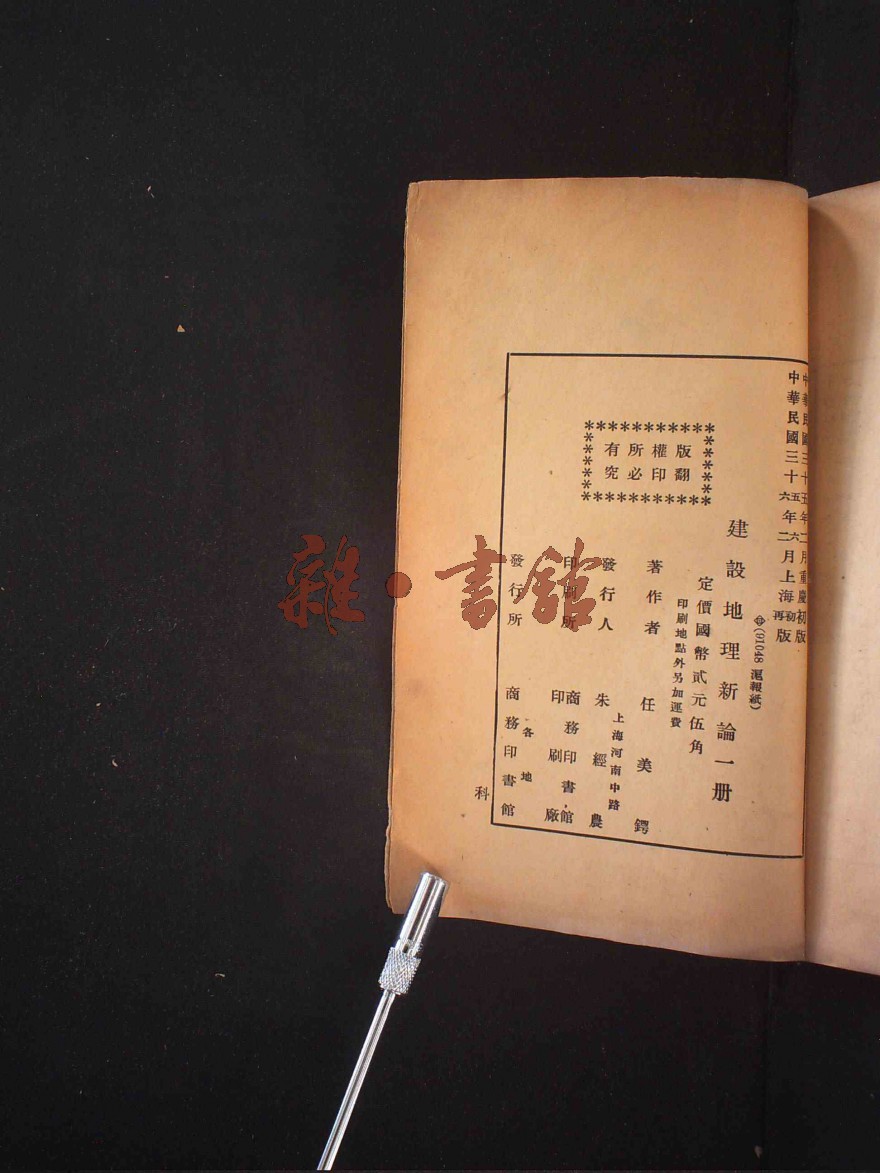 中華民國三十五年二月重慶初版
中華民國三十五六年六二月上海初再版
(91048 滬報紙)
建設地理新論一册
定價國幣貳元伍角
印刷地點外另加運費
版權所有
翻印必究
著作者 任美鍔
發行人 朱經農
上海河南中路
印刷所 商務印書館
印刷廠
發行所 商務印書館
各地
科
雜·書館